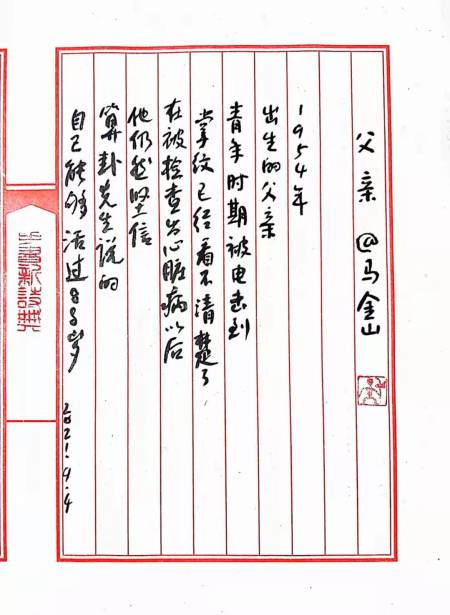 父亲 @马金山
1954年
出生的父亲
青年时期被电击到
掌纹已经看不清楚了
在被检查出心脏病以后
他仍然坚信
算卦先生说的
自己能够活过88岁
2021.9.4